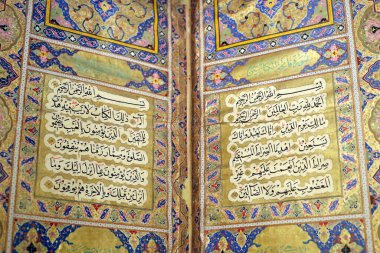 بسم الله الرحمن الرحيم
الحمد لله رب العالمين الرحمن الرحيم
مالك يوم الدين إياك نعبد وإياك
نستعين اهدنا الصراط المستقيم
صراط الذين أنعمت عليهم غير
المغضوب عليهم ولا الضالين
بسم الله الرحمن الرحيم
الم ذلك الكتاب لا ريب فيه هدى
للمتقين الذين يؤمنون بالغيب ويقيمون
الصلوة ومما رزقناهم ينفقون
والذين يؤمنون بما أنزل إليك وما
أنزل من قبلك وبالآخرة هم يوقنون